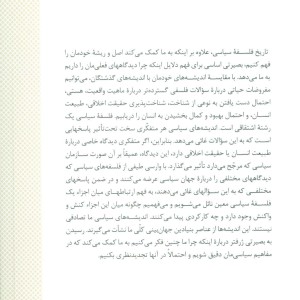 تاریخ فلسفهٔ سیاسی، علاوه بر اینکه به ما کمک می‌کند اصل و ریشهٔ خودمان را
فهم کنیم، بصیرتی اساسی برای فهم دلایل اینکه چرا دیدگاههای فعلی‌مان را داریم
به ما می‌دهد. با مقایسهٔ اندیشه‌های خودمان با اندیشه‌های گذشتگان، می‌توانیم
مفروضات حیاتی دربارهٔ سؤالات فلسفی گسترده‌تر دربارهٔ ماهیت واقعیت، هستی،
احتمال دست یافتن به نوعی از شناخت، شناخت‌پذیری حقیقت اخلاقی، طبیعت
انسان، و احتمال بهبود و کمال بخشیدن به انسان را دریابیم. فلسفهٔ سیاسی یک
رشتهٔ اشتقاقی است. اندیشه‌های سیاسی هر متفکری سخت تحت‌تأثیر پاسخهایی
است که به این سؤالات غائی می‌دهد. بنابراین، اگر متفکری دیدگاه خاصی دربارهٔ
طبیعت انسان یا حقیقت اخلاقی دارد، این دیدگاه، عمیقاً بر آن صورت سازمان
سیاسی که مرجّح می‌دارد تأثیر می‌گذارد. با وارسی طیفی از فلسفه‌های سیاسی که
دیدگاههای مختلفی را دربارهٔ جهان سیاسی عرضه می‌کنند، و در ضمن پاسخهای
مختلفی که به این سؤالهای غائی می‌دهند، به فهم ارتباطهای میان اجزاء یک
فلسفهٔ سیاسی معین نائل می‌شویم و می‌فهمیم چگونه میان این اجزاء کنش و
واکنش وجود دارد و چه کارکردی پیدا می‌کنند. اندیشه‌های سیاسی ما تصادفی
نیستند. این اندیشه‌ها از عناصر بنیادین جهان‌بینی کلّی ما نشأت می‌گیرند. رسیدن
به بصیرتی ژرفتر دربارهٔ اینکه چرا ما چنین فکر می‌کنیم به ما کمک می‌کند که در
مفاهیم سیاسی‌مان دقیق شویم و احتمالاً در آنها تجدیدنظری بکنیم.